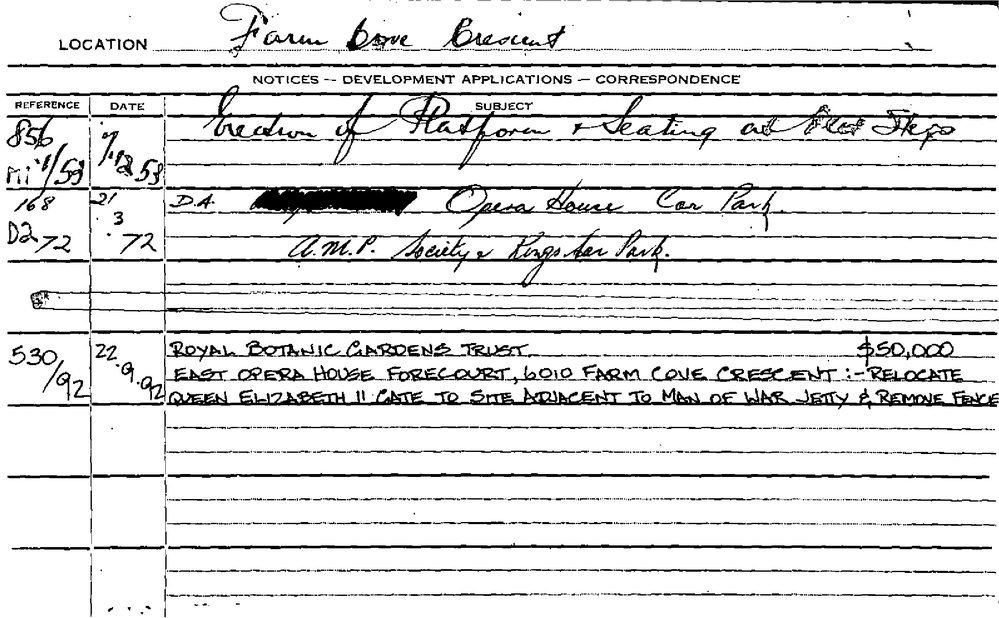 LOCATION Farm Cove Crescent
NOTICES -- DEVELOPMENT APPLICATIONS -- CORRESPONDENCE
REFERENCE DATE SUBJECT
856 Erection of Platform & Seating at Fleet Steps
Mi /53 12 53
168 21 D.A. Opera House Car Park.
D2 72 3 72 A.M.P. Society & Kings Car Park.
530/92 22.9.92 ROYAL BOTANIC GARDENS TRUST $50,000
EAST OPERA HOUSE FORECOURT, 6010 FARM COVE CRESCENT :- RELOCATE
QUEEN ELIZABETH II GATE TO SITE ADJACENT TO MAN OF WAR JETTY & REMOVE FENCE